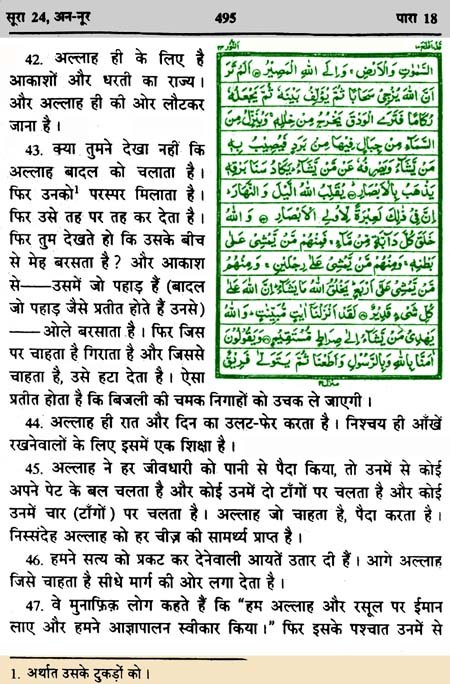 सूरा 24, अन-नूर 495 पारा 18
42. अल्लाह ही के लिए है
आकाशों और धरती का राज्य।
और अल्लाह ही की ओर लौटकर
जाना है।
43. क्या तुमने देखा नहीं कि
अल्लाह बादल को चलाता है।
फिर उनको¹ परस्पर मिलाता है।
फिर उसे तह पर तह कर देता है।
फिर तुम देखते हो कि उसके बीच
से मेह बरसता है? और आकाश
से——उसमें जो पहाड़ हैं (बादल
जो पहाड़ जैसे प्रतीत होते हैं उनसे)
——ओले बरसाता है। फिर जिस
पर चाहता है गिराता है और जिससे
चाहता है, उसे हटा देता है। ऐसा
प्रतीत होता है कि बिजली की चमक निगाहों को उचक ले जाएगी।
44. अल्लाह ही रात और दिन का उलट-फेर करता है। निश्चय ही आँखें
रखनेवालों के लिए इसमें एक शिक्षा है।
45. अल्लाह ने हर जीवधारी को पानी से पैदा किया, तो उनमें से कोई
अपने पेट के बल चलता है और कोई उनमें दो टाँगों पर चलता है और कोई
उनमें चार (टाँगों) पर चलता है। अल्लाह जो चाहता है, पैदा करता है।
निस्संदेह अल्लाह को हर चीज़ की सामर्थ्य प्राप्त है।
46. हमने सत्य को प्रकट कर देनेवाली आयतें उतार दी हैं। आगे अल्लाह
जिसे चाहता है सीधे मार्ग की ओर लगा देता है।
47. वे मुनाफ़िक़ लोग कहते हैं कि “हम अल्लाह और रसूल पर ईमान
लाए और हमने आज्ञापालन स्वीकार किया।” फिर इसके पश्चात उनमें से
1. अर्थात उसके टुकड़ों को।
النُّوْر ٢٤
السَّمٰوٰتِ وَالْاَرْضِ ۚ وَاِلَى اللّٰهِ الْمَصِيْرُ ۝ اَلَمْ تَرَ
اَنَّ اللّٰهَ يُزْجِيْ سَحَابًا ثُمَّ يُؤَلِّفُ بَيْنَهٗ ثُمَّ يَجْعَلُهٗ
رُكَامًا فَتَرَى الْوَدْقَ يَخْرُجُ مِنْ خِلٰلِهٖ ۚ وَيُنَزِّلُ مِنَ
السَّمَآءِ مِنْ جِبَالٍ فِيْهَا مِنْۢ بَرَدٍ فَيُصِيْبُ بِهٖ
مَنْ يَّشَآءُ وَيَصْرِفُهٗ عَنْ مَّنْ يَّشَآءُ ؕ يَكَادُ سَنَا بَرْقِهٖ
يَذْهَبُ بِالْاَبْصَارِ ۝ يُقَلِّبُ اللّٰهُ الَّيْلَ وَالنَّهَارَ ؕ
اِنَّ فِيْ ذٰلِكَ لَعِبْرَةً لِّاُولِي الْاَبْصَارِ ۝ وَاللّٰهُ
خَلَقَ كُلَّ دَآبَّةٍ مِّنْ مَّآءٍ ۚ فَمِنْهُمْ مَّنْ يَّمْشِيْ عَلٰى
بَطْنِهٖ ۚ وَمِنْهُمْ مَّنْ يَّمْشِيْ عَلٰى رِجْلَيْنِ ۚ وَمِنْهُمْ
مَّنْ يَّمْشِيْ عَلٰۤى اَرْبَعٍ ؕ يَخْلُقُ اللّٰهُ مَا يَشَآءُ ؕ اِنَّ اللّٰهَ عَلٰى
كُلِّ شَيْءٍ قَدِيْرٌ ۝ لَقَدْ اَنْزَلْنَاۤ اٰيٰتٍ مُّبَيِّنٰتٍ ؕ وَاللّٰهُ
يَهْدِيْ مَنْ يَّشَآءُ اِلٰى صِرَاطٍ مُّسْتَقِيْمٍ ۝ وَيَقُوْلُوْنَ
اٰمَنَّا بِاللّٰهِ وَبِالرَّسُوْلِ وَاَطَعْنَا ثُمَّ يَتَوَلّٰى فَرِيْقٌ